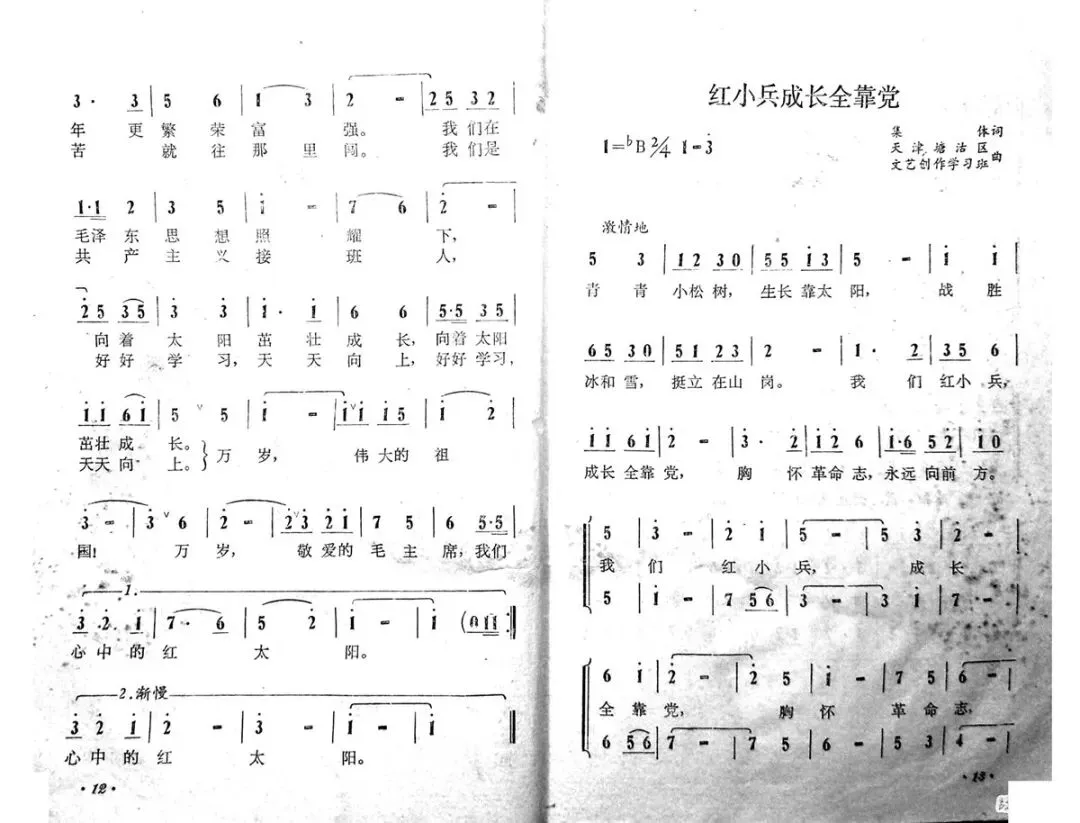 3 · 3 | 5 6 | 1 3 | 2 - | 25 32 |
年 更 繁 荣 富 强。 我 们 在
苦 就 往 那 里 闯。 我 们 是
1·1 2 | 3 5 | i - | 7 6 | 2 - |
毛泽 东 思 想 照 耀 下,
共 产 主 义 接 班 人,
25 35 | 3 3 | i · i | 6 6 | 5·5 35 |
向 着 太 阳 茁 壮 成 长, 向着 太阳
好 好 学 习, 天 天 向 上, 好好 学习,
ii 6i | 5 ∨ 5 | i - | i∨i i5 | i 2 |
茁壮 成 长。} 万 岁, 伟 大的 祖
天天 向 上。
3 - | 3 ∨ 6 | 2 - | 2∨3 2i | 7 5 | 6 5·5 |
国! 万 岁, 敬 爱的 毛 主 席, 我们
1.
3 2 i | 7· 6 | 5 2 | i - | i (0ii :‖
心 中 的 红 太 阳。
2.渐慢
3 2 i | 2 - | 3 - | i - | i - ‖
心 中 的 红 太 阳。
·12·
红小兵成长全靠党
1=♭B 2/4 1-3
集 体词
天津塘沽区
文艺创作学习班曲
激情地
5 3 | 12 30 | 55 i3 | 5 - | i i |
青 青 小松 树, 生长 靠太 阳, 战 胜
65 30 | 51 23 | 2 - | i · 2 | 35 6 |
冰和 雪, 挺立 在山 岗。 我 们 红小 兵,
ii 6i | 2 - | 3 · 2 | i2 6 | i·6 52 | i0 |
成长 全靠 党, 胸 怀 革命 志, 永远 向前 方。
5 3 - | 2 i | 5 - | 5 3 | 2 - |
我 们 红 小 兵, 成 长
5 i - | 7 56 | 3 - | 3 i | 7 - |
6 i | 2 - | 2 5 | i - | 7 5 | 6 - |
全 靠 党, 胸 怀 革 命 志,
6 56 | 7 - | 7 5 | 6 - | 5 3 | 4 - |
·13·